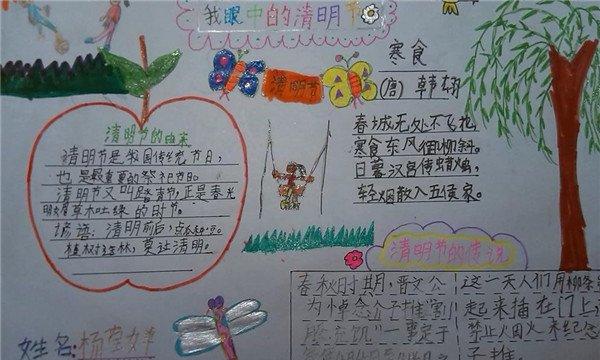 我眼中的清明节
清明节
寒食
(唐) 韩翃
春城无处不飞花
寒食东风御柳斜。
日暮汉宫传蜡烛,
轻烟散入五侯家。
清明节的由来
清明节是我国传统节日,
也是最重要的祭祀节日
清明节又叫踏青节,正是春光
明媚草木吐绿的时节。
谚语:清明前后,点瓜种豆。
植树造林,莫过清明。
清明节的传说
春秋时期,晋文公
为悼念介子推"割
一定于
这一天人们用柳条
起来插在门上,
禁止烟火
子推
姓名:杨